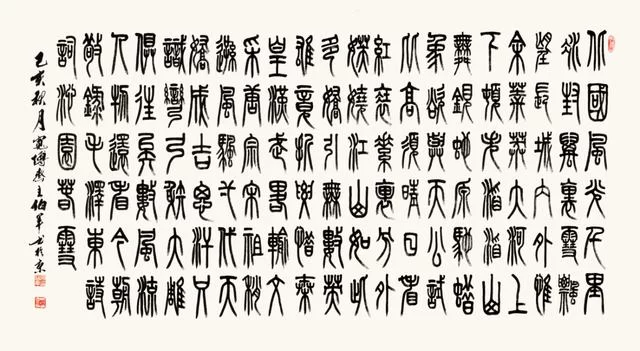 北國風光千里
冰封萬里雪飄
望長城內外惟
余莽莽大河上
下頓失滔滔山
舞銀蛇原馳蠟
象欲與天公試
比高須晴日看
紅裝素裹分外
妖嬈江山如此
多嬌引無數英
雄競折腰惜秦
皇漢武略輸文
采唐宗宋祖稍
遜風騷一代天
驕成吉思汗只
識彎弓射大雕
俱往矣數風流
人物還看今朝
敬錄毛澤東詩
詞沁園春雪
己亥秋月寬博齋主伯軍書於京